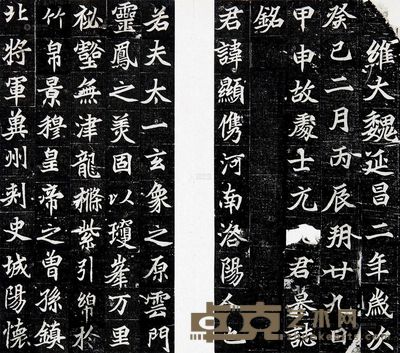 維大魏延昌二年歲次
癸巳二月丙辰朔廿九日
甲申故處士元君墓誌
銘
君諱顯儁河南洛陽人也
若夫太一玄象之原雲門
靈鳳之美固以瓊峯万里
祕壑無津龍檦紫引綿於
竹帛景穆皇帝之曾孫鎮
北將軍冀州刺史城陽懷